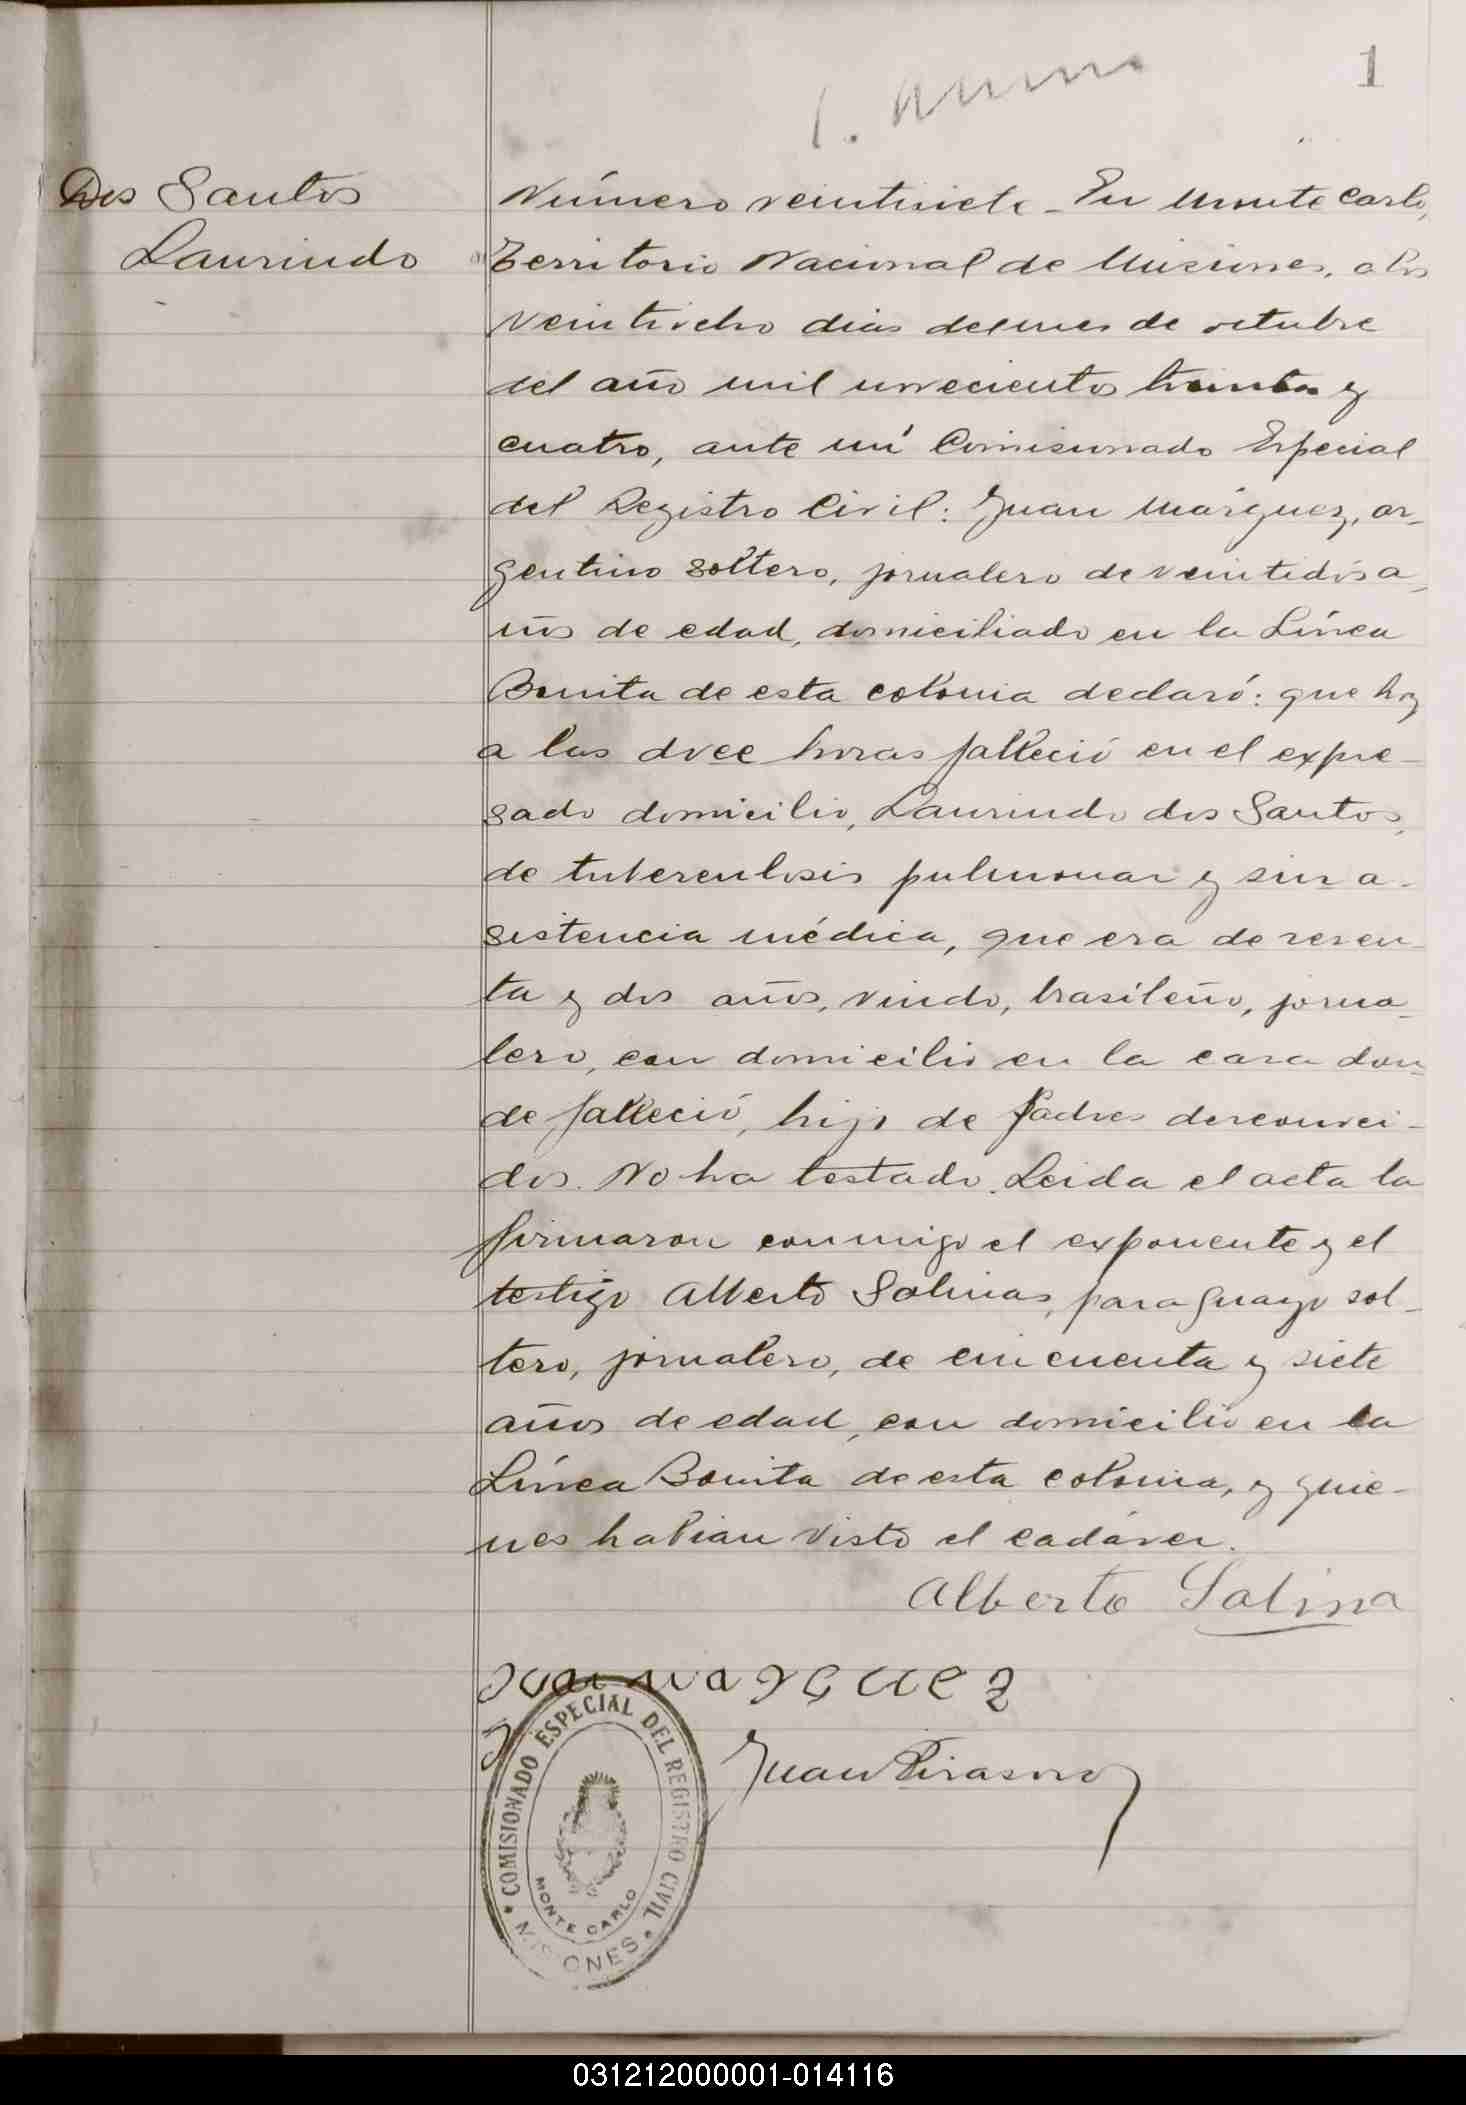 1
Dos Santos
Laurindo
Número veintisiete - En Monte Carlo,
Territorio Nacional de Misiones, a los
veintiocho dias del mes de octubre
del año mil novecientos treinta y
cuatro, ante mí Comisionado Especial
del Registro Civil: Juan Márquez, ar-
gentino soltero, jornalero de veintidós a-
ños de edad, domiciliado en la Línea
Bonita de esta colonia declaró: que hoy
a las doce horas falleció en el expre-
sado domicilio, Laurindo dos Santos,
de tuberculosis pulmonar y sin a-
sistencia médica, que era de sesen-
ta y dos años, viudo, brasileño, jorna-
lero, con domicilio en la casa don-
de falleció, hijo de padres desconoci-
dos. No ha testado. Leida el acta la
firmaron conmigo el exponente y el
testigo Alberto Salinas, paraguayo sol-
tero, jornalero, de cincuenta y siete
años de edad, con domicilio en la
Línea Bonita de esta colonia, y quie-
nes habian visto el cadáver.
Alberto Salina
Juan Marquez
Juan
COMISIONADO ESPECIAL DEL REGISTRO CIVIL
MONTE CARLO
MISIONES
031212000001-014116